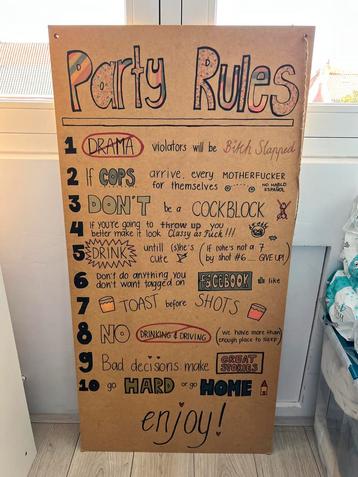 Party Rules
1 DRAMA violators will be Bitch Slapped
2 If COPS arrive, every MOTHERFUCKER
for themselves NO HABLO
ESPAÑOL
3 DON'T be a COCKBLOCK
4 If you're going to throw up you
better make it look Classy as Fuck!!!
5 DRINK untill (s)he's cute (If (s)he's not a 7
by shot #6.... GIVE UP!)
6 Don't do anything you
don't want tagged on FACEBOOK like
7 TOAST before SHOTS
8 NO DRINKING & DRIVING (we have more than
enough place to sleep)
9 Bad decisions make GREAT
STORIES
10 go HARD or go HOME
enjoy!